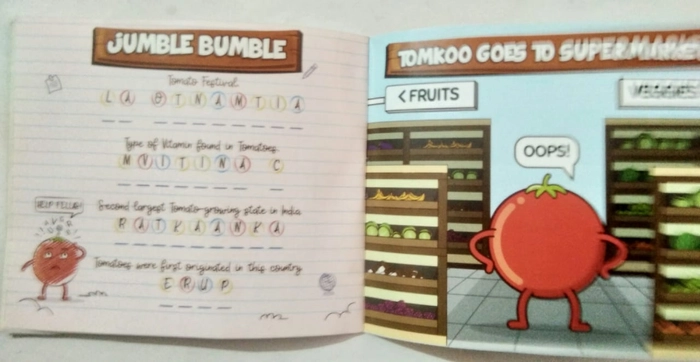 JUMBLE BUMBLE
Tomato Festival
L A O T N A M T I A
Type of Vitamin found in Tomatoes
M V I T I N A C
HELP
Second largest Tomato-growing state in India
R A T K A A N K A
Tomatoes were first originated in this country
E R U P
TOMKOO GOES TO SUPERMARKET
< FRUITS
VEGGIES
OOPS!